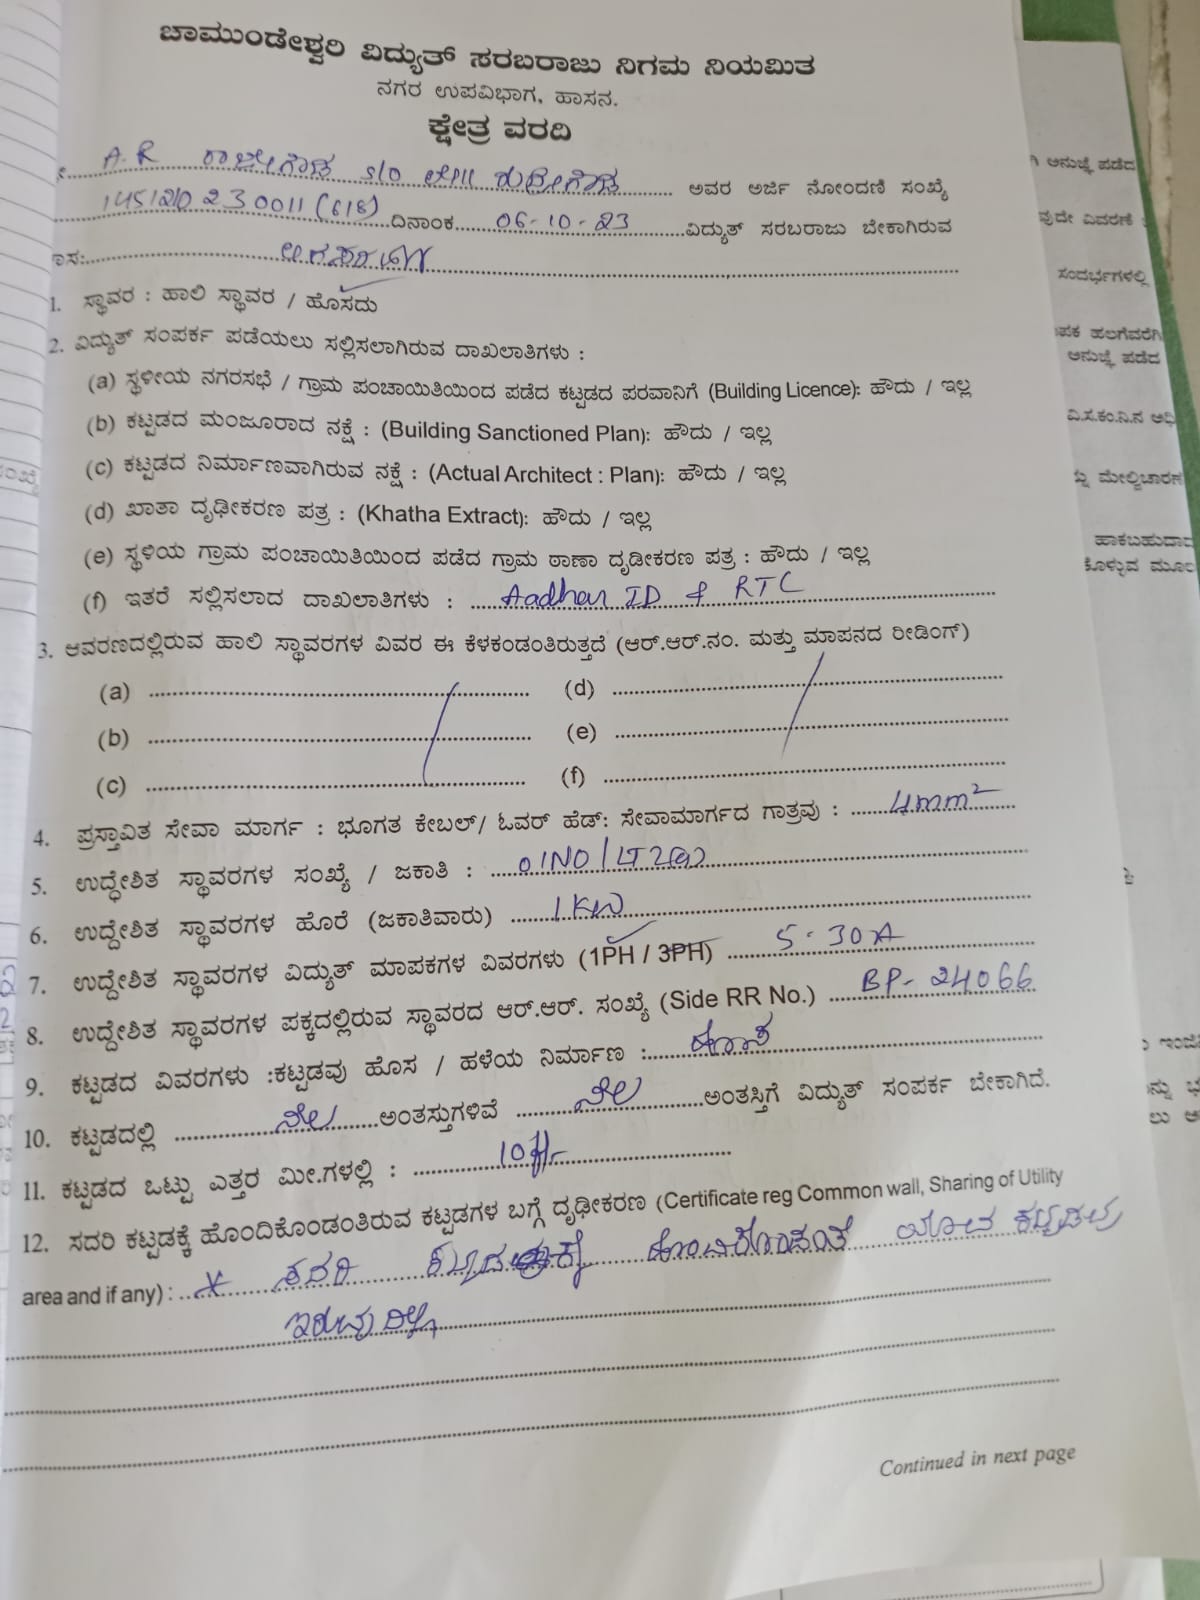 ಚಾಮುಂಡೇಶ್ವರಿ ವಿದ್ಯುತ್ ಸರಬರಾಜು ನಿಗಮ ನಿಯಮಿತ
ನಗರ ಉಪವಿಭಾಗ, ಹಾಸನ.
ಕ್ಷೇತ್ರ ವರದಿ
A.R ರಾಜೇಗೌಡ S/O ಲೇ|| ಅವರ ಅರ್ಜಿ ನೋಂದಣಿ ಸಂಖ್ಯೆ
ದಿನಾಂಕ 06-10-23 ವಿದ್ಯುತ್ ಸರಬರಾಜು ಬೇಕಾಗಿರುವ
1. ಸ್ಥಾವರ : ಹಾಲಿ ಸ್ಥಾವರ / ಹೊಸದು
2. ವಿದ್ಯುತ್ ಸಂಪರ್ಕ ಪಡೆಯಲು ಸಲ್ಲಿಸಲಾಗಿರುವ ದಾಖಲಾತಿಗಳು :
(a) ಸ್ಥಳೀಯ ನಗರಸಭೆ / ಗ್ರಾಮ ಪಂಚಾಯಿತಿಯಿಂದ ಪಡೆದ ಕಟ್ಟಡದ ಪರವಾನಿಗೆ (Building Licence): ಹೌದು / ಇಲ್ಲ
(b) ಕಟ್ಟಡದ ಮಂಜೂರಾದ ನಕ್ಷೆ : (Building Sanctioned Plan): ಹೌದು / ಇಲ್ಲ
(c) ಕಟ್ಟಡದ ನಿರ್ಮಾಣವಾಗಿರುವ ನಕ್ಷೆ : (Actual Architect : Plan): ಹೌದು / ಇಲ್ಲ
(d) ಖಾತಾ ದೃಢೀಕರಣ ಪತ್ರ : (Khatha Extract): ಹೌದು / ಇಲ್ಲ
(e) ಸ್ಥಳಿಯ ಗ್ರಾಮ ಪಂಚಾಯಿತಿಯಿಂದ ಪಡೆದ ಗ್ರಾಮ ಠಾಣಾ ದೃಡೀಕರಣ ಪತ್ರ : ಹೌದು / ಇಲ್ಲ
(f) ಇತರೆ ಸಲ್ಲಿಸಲಾದ ದಾಖಲಾತಿಗಳು : Aadhar ID & RTC
3. ಆವರಣದಲ್ಲಿರುವ ಹಾಲಿ ಸ್ಥಾವರಗಳ ವಿವರ ಈ ಕೆಳಕಂಡಂತಿರುತ್ತದೆ (ಆರ್.ಆರ್.ನಂ. ಮತ್ತು ಮಾಪನದ ರೀಡಿಂಗ್)
(a) (d)
(b) (e)
(c) (f)
4. ಪ್ರಸ್ತಾವಿತ ಸೇವಾ ಮಾರ್ಗ : ಭೂಗತ ಕೇಬಲ್/ ಓವರ್ ಹೆಡ್: ಸೇವಾಮಾರ್ಗದ ಗಾತ್ರವು : 4mm²
5. ಉದ್ಧೇಶಿತ ಸ್ಥಾವರಗಳ ಸಂಖ್ಯೆ / ಜಕಾತಿ : 01NO/LT2(a)
6. ಉದ್ದೇಶಿತ ಸ್ಥಾವರಗಳ ಹೊರೆ (ಜಕಾತಿವಾರು) 1KW
7. ಉದ್ದೇಶಿತ ಸ್ಥಾವರಗಳ ವಿದ್ಯುತ್ ಮಾಪಕಗಳ ವಿವರಗಳು (1PH / 3PH) 5-30A
8. ಉದ್ದೇಶಿತ ಸ್ಥಾವರಗಳ ಪಕ್ಕದಲ್ಲಿರುವ ಸ್ಥಾವರದ ಆರ್.ಆರ್. ಸಂಖ್ಯೆ (Side RR No.) BP-24066
9. ಕಟ್ಟಡದ ವಿವರಗಳು :ಕಟ್ಟಡವು ಹೊಸ / ಹಳೆಯ ನಿರ್ಮಾಣ : ಹೊಸ
10. ಕಟ್ಟಡದಲ್ಲಿ ನೆಲ ಅಂತಸ್ತುಗಳಿವೆ ನೆಲ ಅಂತಸ್ತಿಗೆ ವಿದ್ಯುತ್ ಸಂಪರ್ಕ ಬೇಕಾಗಿದೆ.
11. ಕಟ್ಟಡದ ಒಟ್ಟು ಎತ್ತರ ಮೀ.ಗಳಲ್ಲಿ : 10ft
12. ಸದರಿ ಕಟ್ಟಡಕ್ಕೆ ಹೊಂದಿಕೊಂಡಂತಿರುವ ಕಟ್ಟಡಗಳ ಬಗ್ಗೆ ದೃಢೀಕರಣ (Certificate reg Common wall, Sharing of Utility
area and if any) : ಸದರಿ ಕಟ್ಟಡಕ್ಕೆ ಹೊಂದಿಕೊಂಡಂತೆ ಯಾವ ಕಟ್ಟಡವು
ಇರುವುದಿಲ್ಲ
Continued in next page
ಅನುಜ್ಞೆ ಪಡೆದ
ವುದೇ ವಿವರಣೆ
ಸಂದರ್ಭಗಳಲ್ಲಿ
ಪಕ ಹಲಗೆವರೆಗಿ
ಅನುಜ್ಞೆ ಪಡೆದ
ವಿ.ಸ.ಕಂ.ನಿ.ನ ಅಧಿ
ಮೇಲ್ವಿಚಾರಣೆ
ಹಾಕಬಹುದಾದ
ಕೊಳ್ಳುವ ಮೂಲ